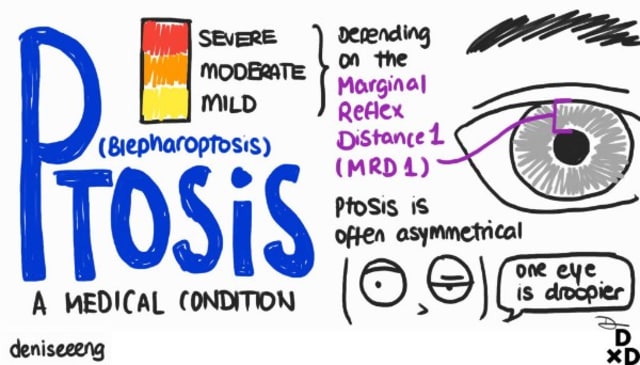 Ptosis
(Blepharoptosis)
A MEDICAL CONDITION
SEVERE
MODERATE
MILD
Depending
on the
Marginal
Reflex
Distance 1
(MRD 1)
Ptosis is
often asymmetrical
one eye
is droopier
deniseeeng
D
×D